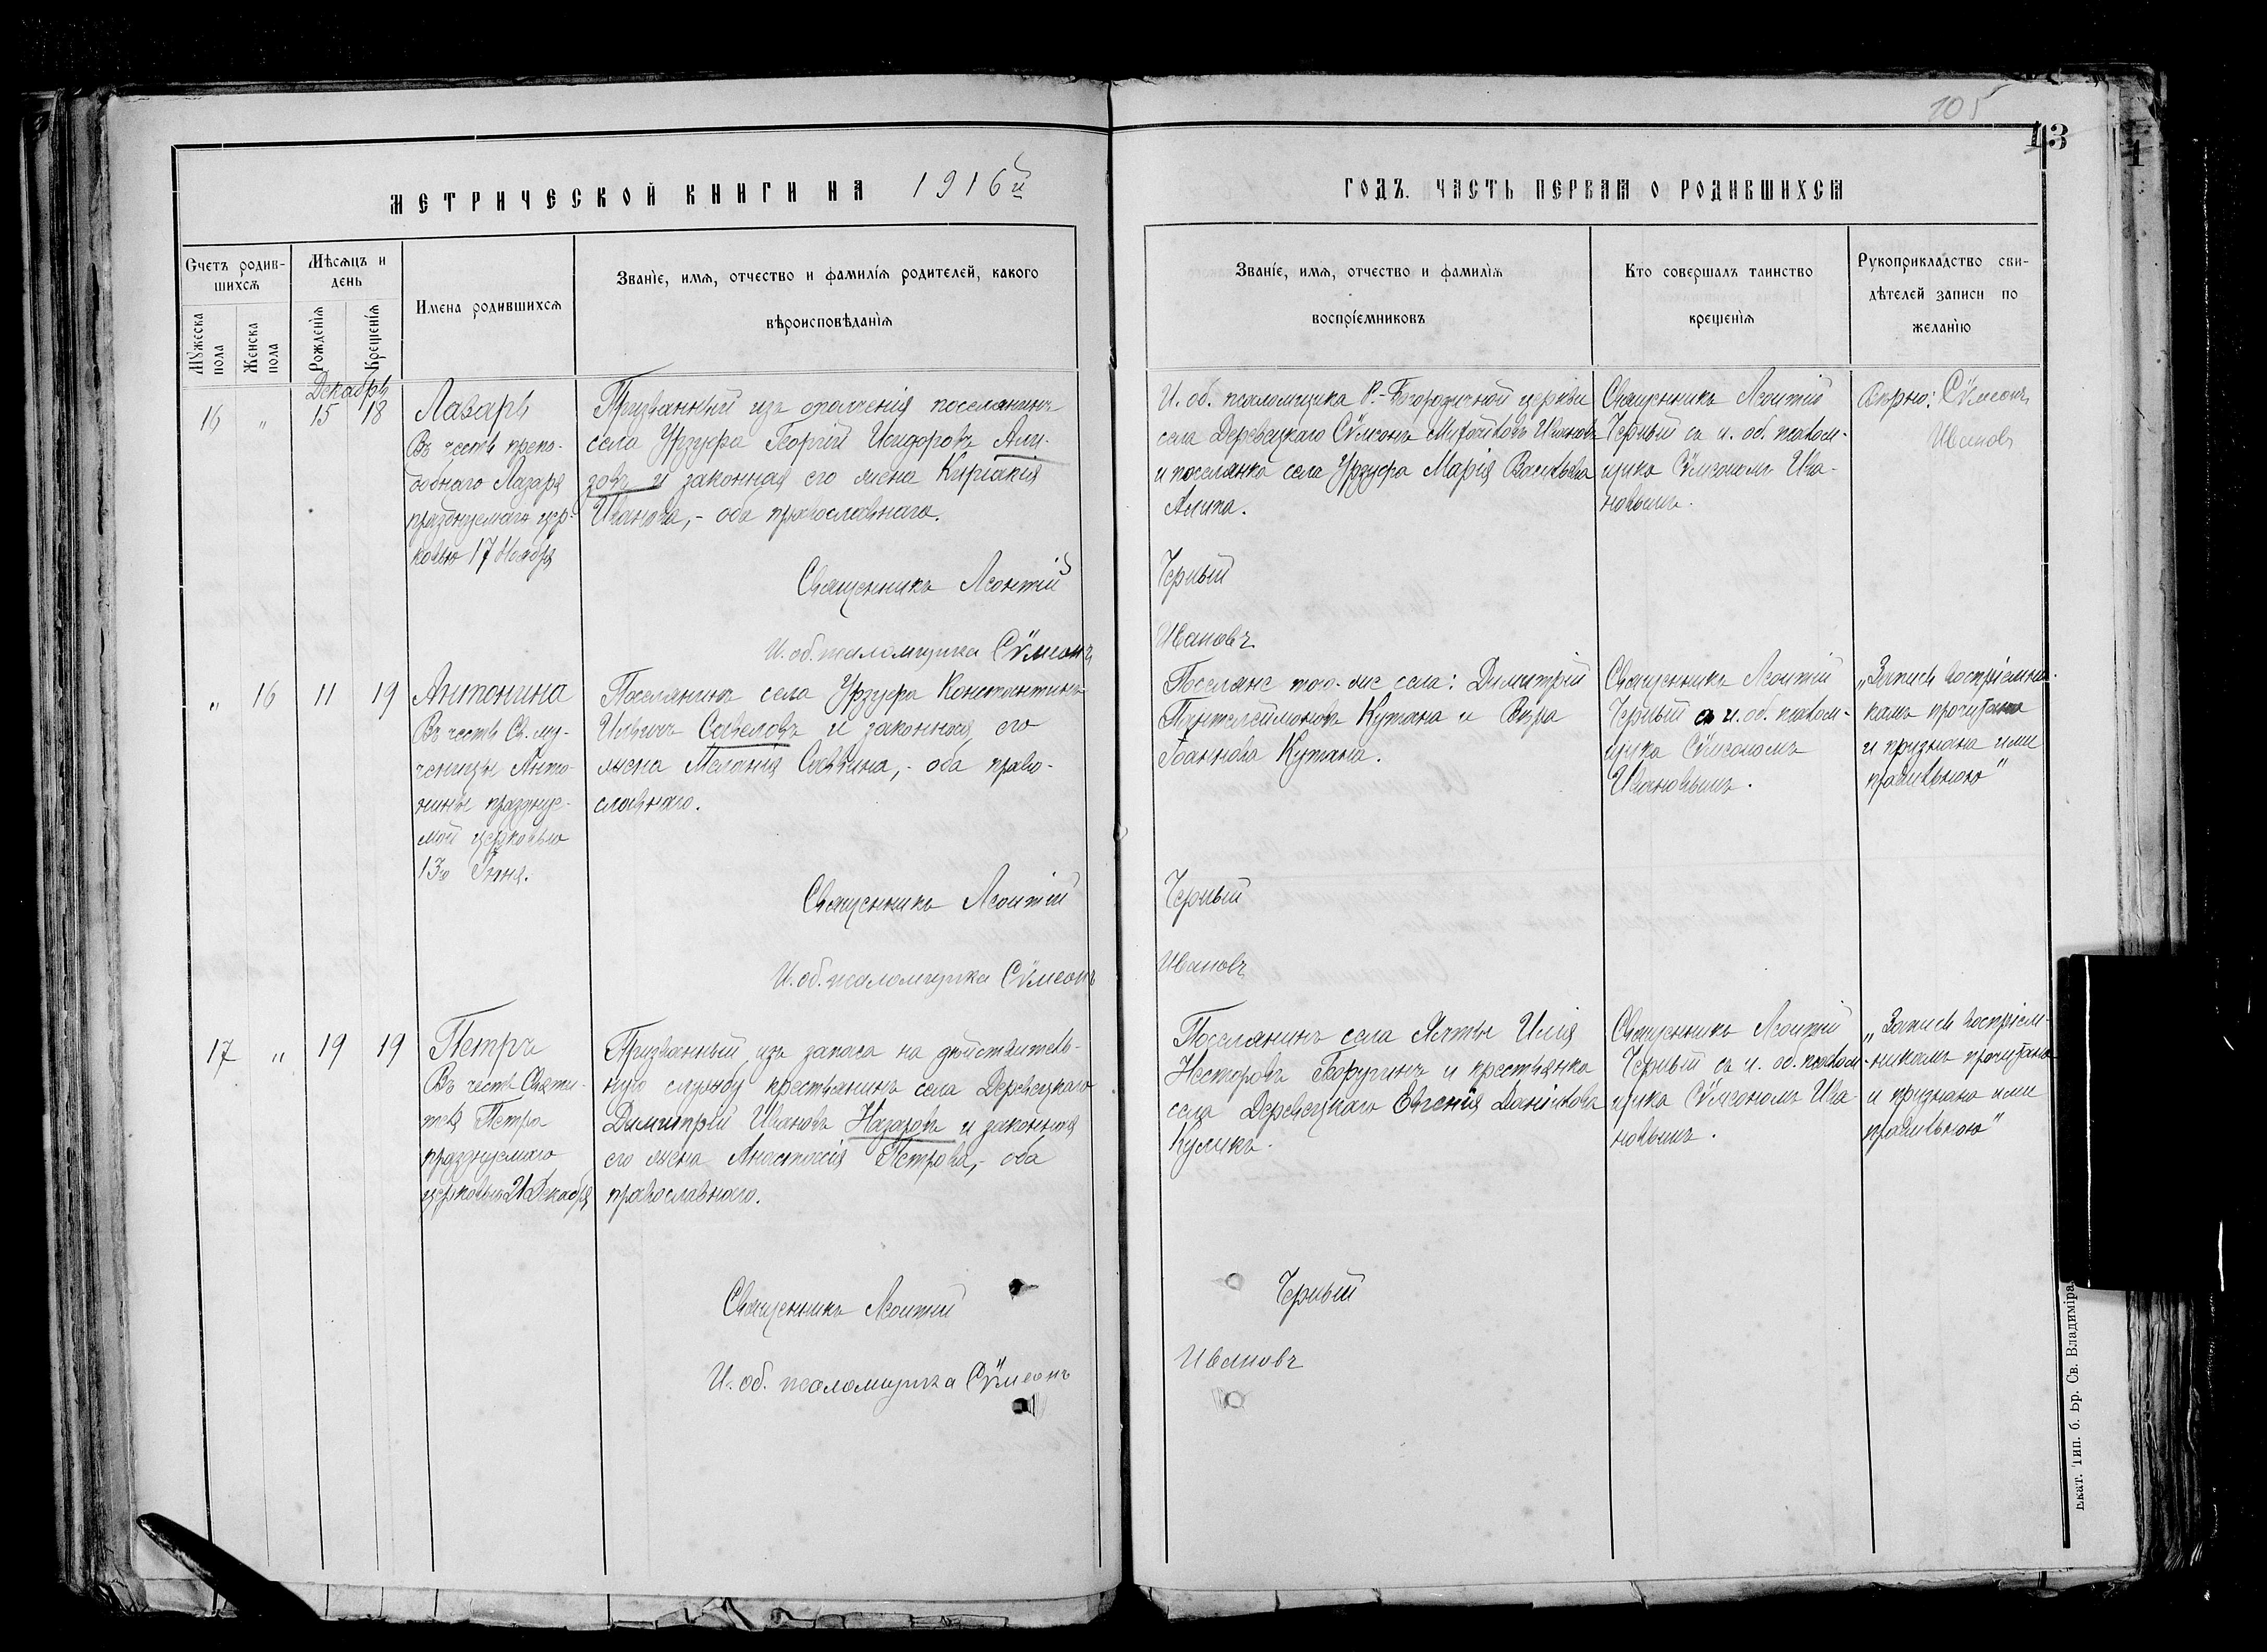 105
13
МЕТРИЧЕСКОЙ КНИГИ НА 1916й
ГОДЪ. ЧАСТЬ ПЕРВАЯ О РОДИВШИХСЯ
Счетъ родив-
шихся
Мужеска
пола
Женска
пола
Мѣсяцъ и
день
Рожденія
Крещенія
Имена родившихся
Званіе, имя, отчество и фамилія родителей, какого
вѣроисповѣданія
Званіе, имя, отчество и фамилія
воспріемниковъ
Кто совершалъ таинство
крещенія
Рукоприкладство сви-
дѣтелей записи по
желанію
Декабрь
16 " 15 18
Лазарь
Въ честь препо-
добнаго Лазаря
празднуемаго цер-
ковью 17 Ноября
Призванный изъ ополченія поселянинъ
села Урзуфа Георгій Исидоровъ
и законная его жена Киріакія
Иванова, - оба православнаго.
Священникъ Леонтій
И. об. псаломщика Сѵмеонъ
И. об. псаломщика Р.-Богородичной церкви
села Деревецкаго Сѵмеонъ Ивановъ
и поселянка села Урзуфа Марія Васильева
Черный
Ивановъ
Священникъ Леонтій
Черный съ и. об. псалом-
щика Сѵмеономъ Ива-
новымъ.
Вѣрно: Сѵмеонъ
Ивановъ
" 16 11 19
Антонина
Въ честь Св. му-
ченицы Анто-
нины праздnуе-
мой церковью
13го Іюня.
Поселянинъ села Урзуфа Константинъ
Ильичъ Савеловъ и законная его
жена Меланія Саввина, - оба право-
славнаго.
Священникъ Леонтій
И. об. псаломщика Сѵмеонъ
Поселяне того-же села: Димитрій
Пантелеймоновъ Кутана и Вѣра
Іоаннова Кутана.
Черный
Ивановъ
Священникъ Леонтій
Черный съ и. об. псалом-
щика Сѵмеономъ
Ивановымъ.
„Запись воспріемни-
камъ прочитана
и признана ими
правильною"
17 " 19 19
Петръ
Въ честь Святи-
теля Петра
празднуемаго
церковью 21 Декабря
Призванный изъ запаса на дѣйствитель-
ную службу крестьянинъ села Деревецкаго
Димитрій Ивановъ Назаровъ и законная
его жена Анастасія Петрова, - оба
православнаго.
Священникъ Леонтій
И. об. псаломщика Сѵмеонъ
Поселянинъ села Ялты Илія
Несторовъ и крестьянка
села Деревецкаго Евгенія Даніилова
Куликъ.
Черный
Ивановъ
Священникъ Леонтій
Черный съ и. об. псалом-
щика Сѵмеономъ Ива-
новымъ.
„Запись воспріем-
никамъ прочитана
и признана ими
правильною"
Екат. Тип. б. Бр. Св. Владиміра